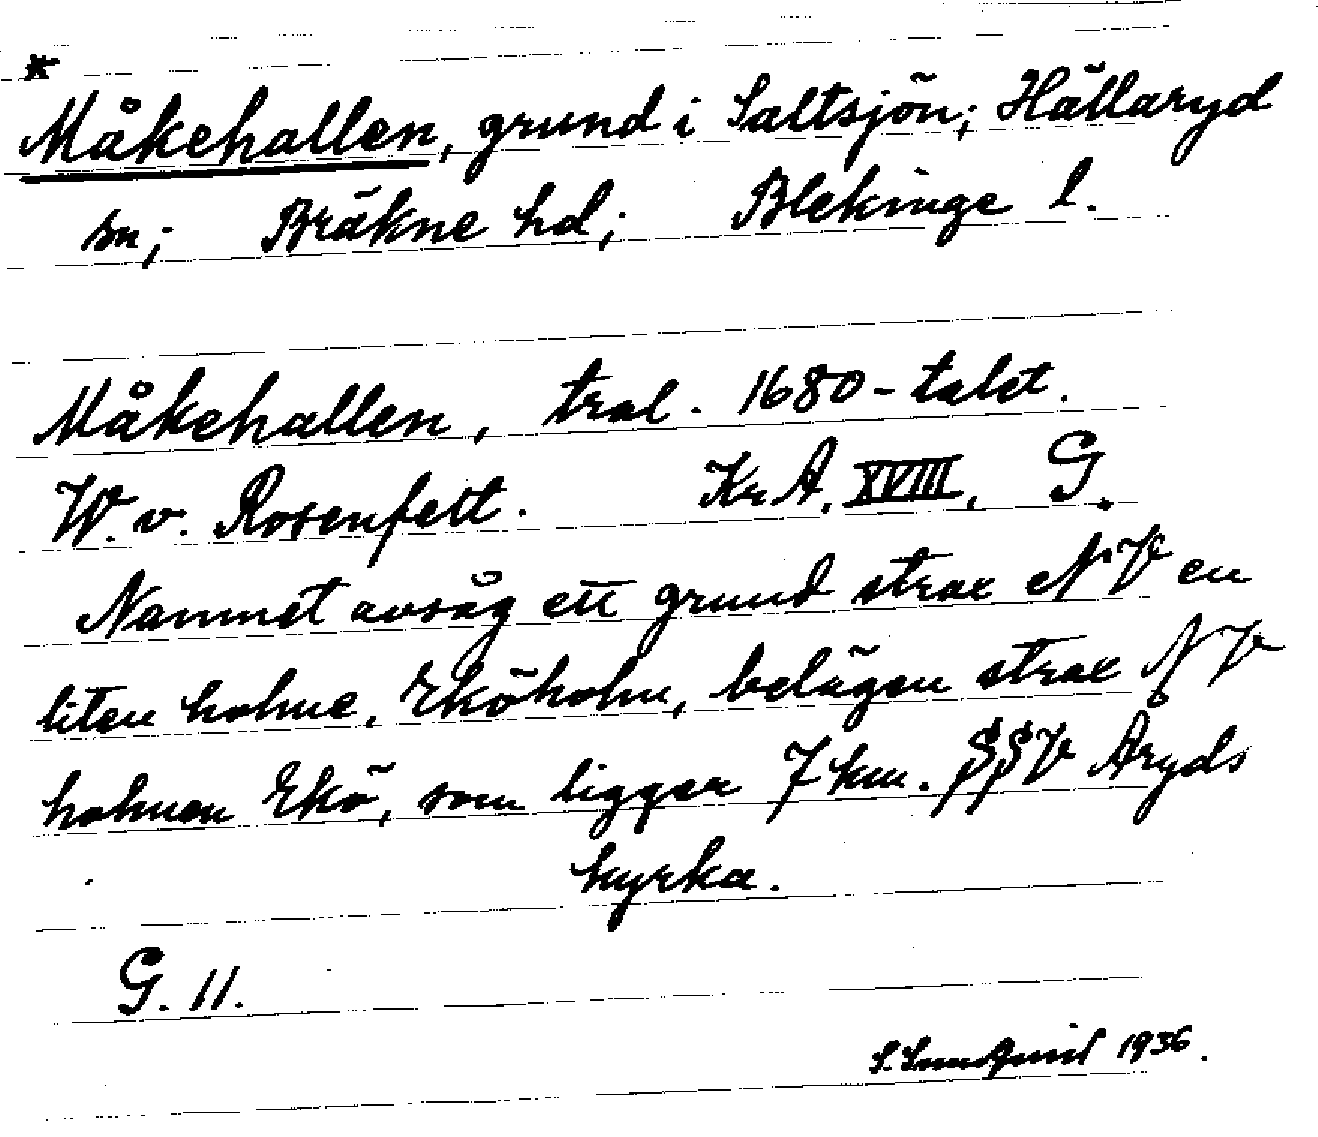 *
Måkehallen, grund i Saltsjön; Hällaryd
sn; Bräkne hd; Blekinge l.
Måkehallen, tral. 1680-talet.
W. v. Rosenfelt. Kr A. XVIII, G.
Namnet avsåg ett grund strax NV en
liten holme, Eköholm, belägen strax NV
holmen Ekö, som ligger 7 km. SSV Åryds
kyrka.
G. 11.
S. 1936.